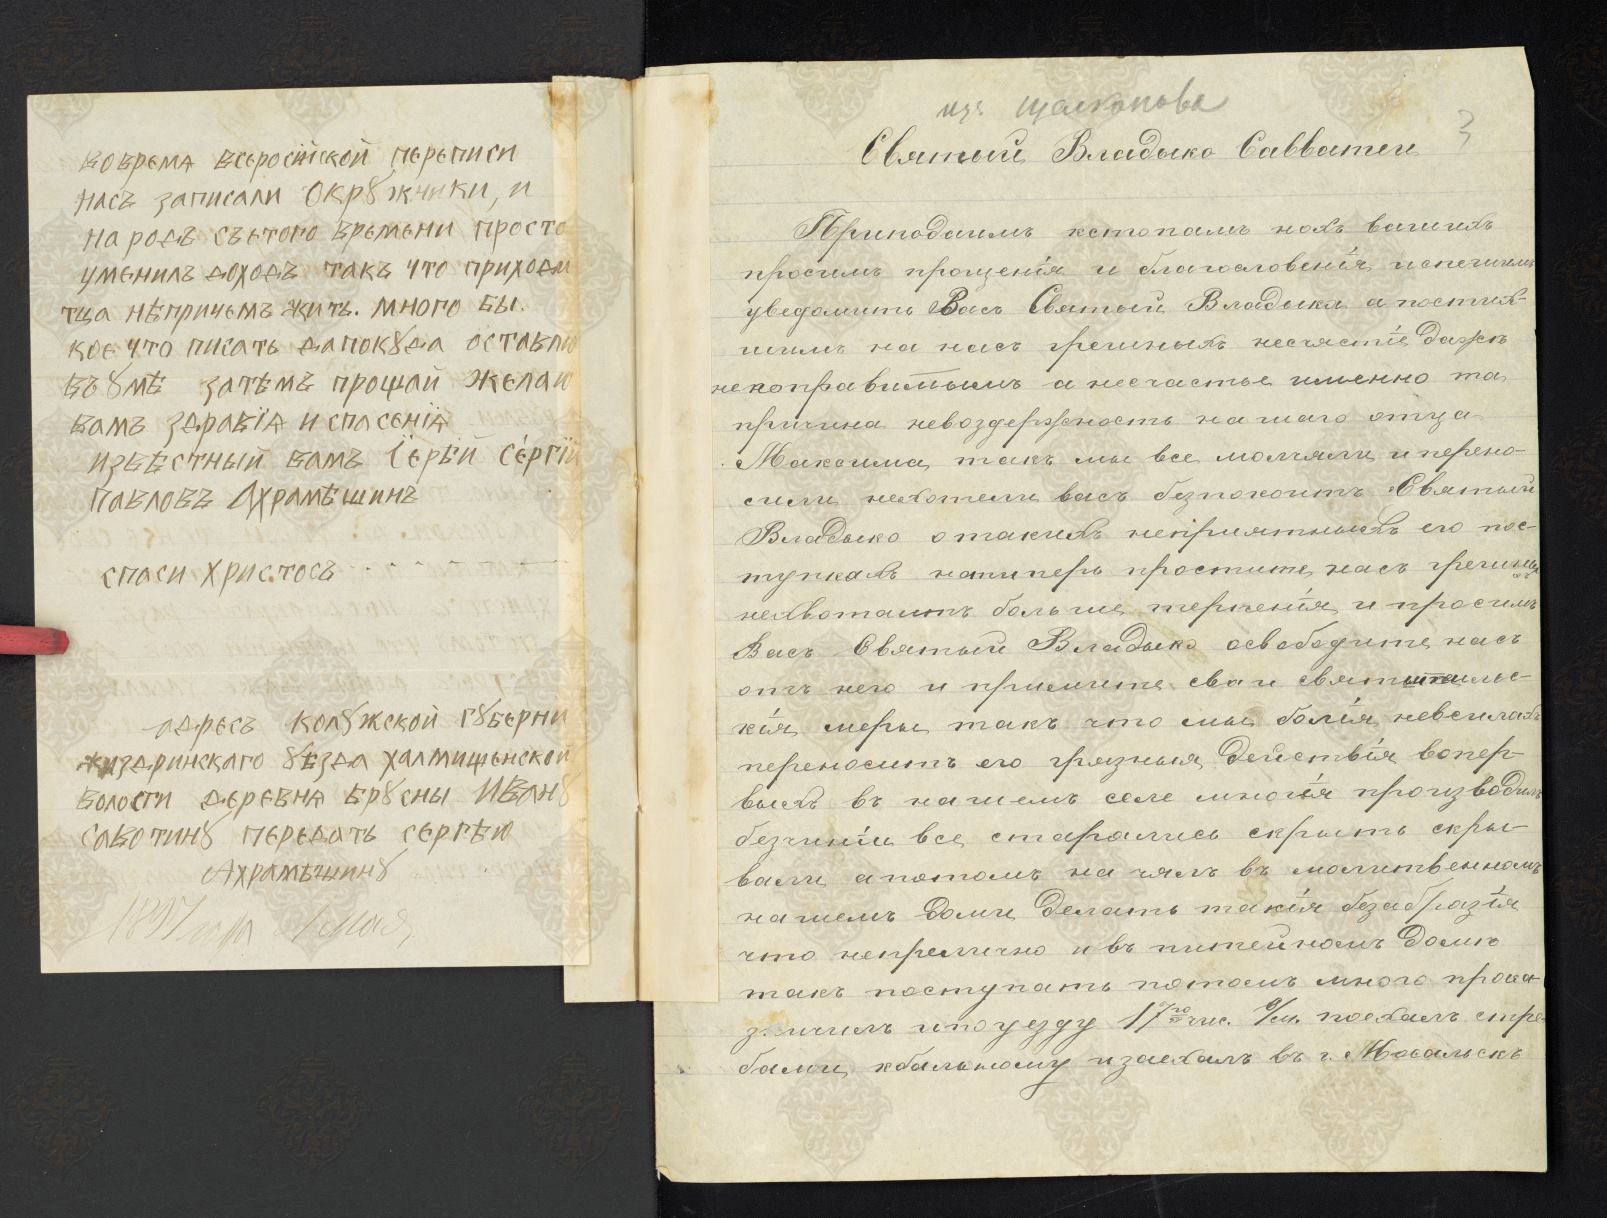 вовремѧ всеросїйской переписи
насъ записали Окрꙋжники, и
народъ съетого времени просто
уменилъ доходъ такъ что приходи
тца нѣпричемъ жить. много бы.
кое что писать дапокꙋда оставлю
въꙋмѣ затѣмъ прощай желаю
вамъ здравїѧ и спасенїѧ
извѣстный вамъ Їерѣй Сергїй
Павловъ Ахрамѣшинъ
спаси христосъ
адресъ колꙋжской гꙋберни
жиздринскаго ꙋѣзда халмищьнской
волости деревнѧ брꙋсны Иванꙋ
савотинꙋ передать сергѣю
Ахрамѣшинꙋ
1897 года 1 мая
изъ Щалконова
3
Святый Владыко Савватеи
Приподаимъ кстопамъ ногъ вашихъ
просимъ прощенія и благословенія, испешимъ
уведомить Васъ Святый Владыка апостиг-
шимъ на насъ грешныхъ несчастіе даже
непоправимымъ а несчастье именно та
причина невоздержность нашаго отца
Максима, такъ мы все молчали, и перено-
сили нехотели васъ безпокоить Святый
Владыко отакихъ непріятныхъ его пос-
тупкахъ натиперь простите, насъ грешных
нехвотаитъ больше терпенія, и просимъ
Васъ Святый Владыко освободите насъ
отъ него и примите сваи святительс-
кія меры такъ что мы болія невсилахъ
переносить его грязныя Действія вопер-
выхъ въ нашемъ селе многія производилъ
безчиніи все старались скрыть скры-
вали, апотомъ на чялъ въ молитвенномъ
нашемъ доми Делать такія безабразія
что неприлично и въ питейномъ доми
такъ поступать потомъ много прока-
зничилъ ипоуезду 17го чис. с/м. поехалъ стре-
бами, кбальному изаехалъ въ г. Мосальскъ